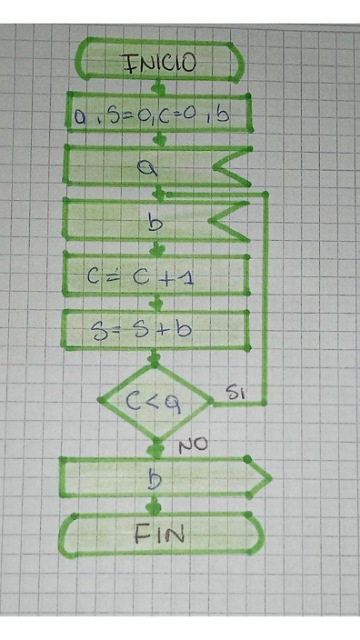 INICIO
a, S=0, C=0, b
a
b
C = C + 1
S = S + b
C < a
SI
NO
b
FIN